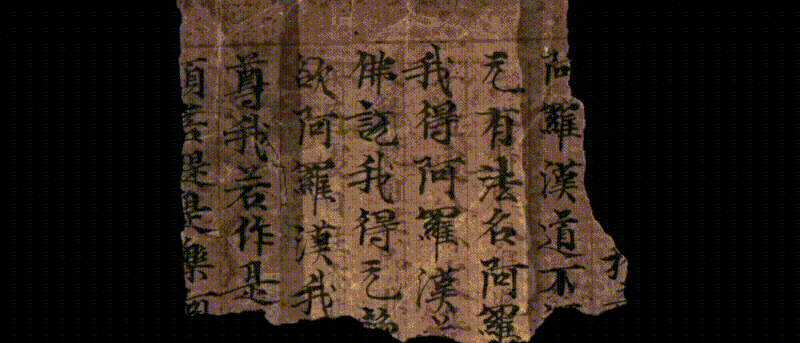 阿羅漢道不
无有法名阿羅
我得阿羅漢
佛說我得无
欲阿羅漢我
尊我若作是
須菩提是樂阿